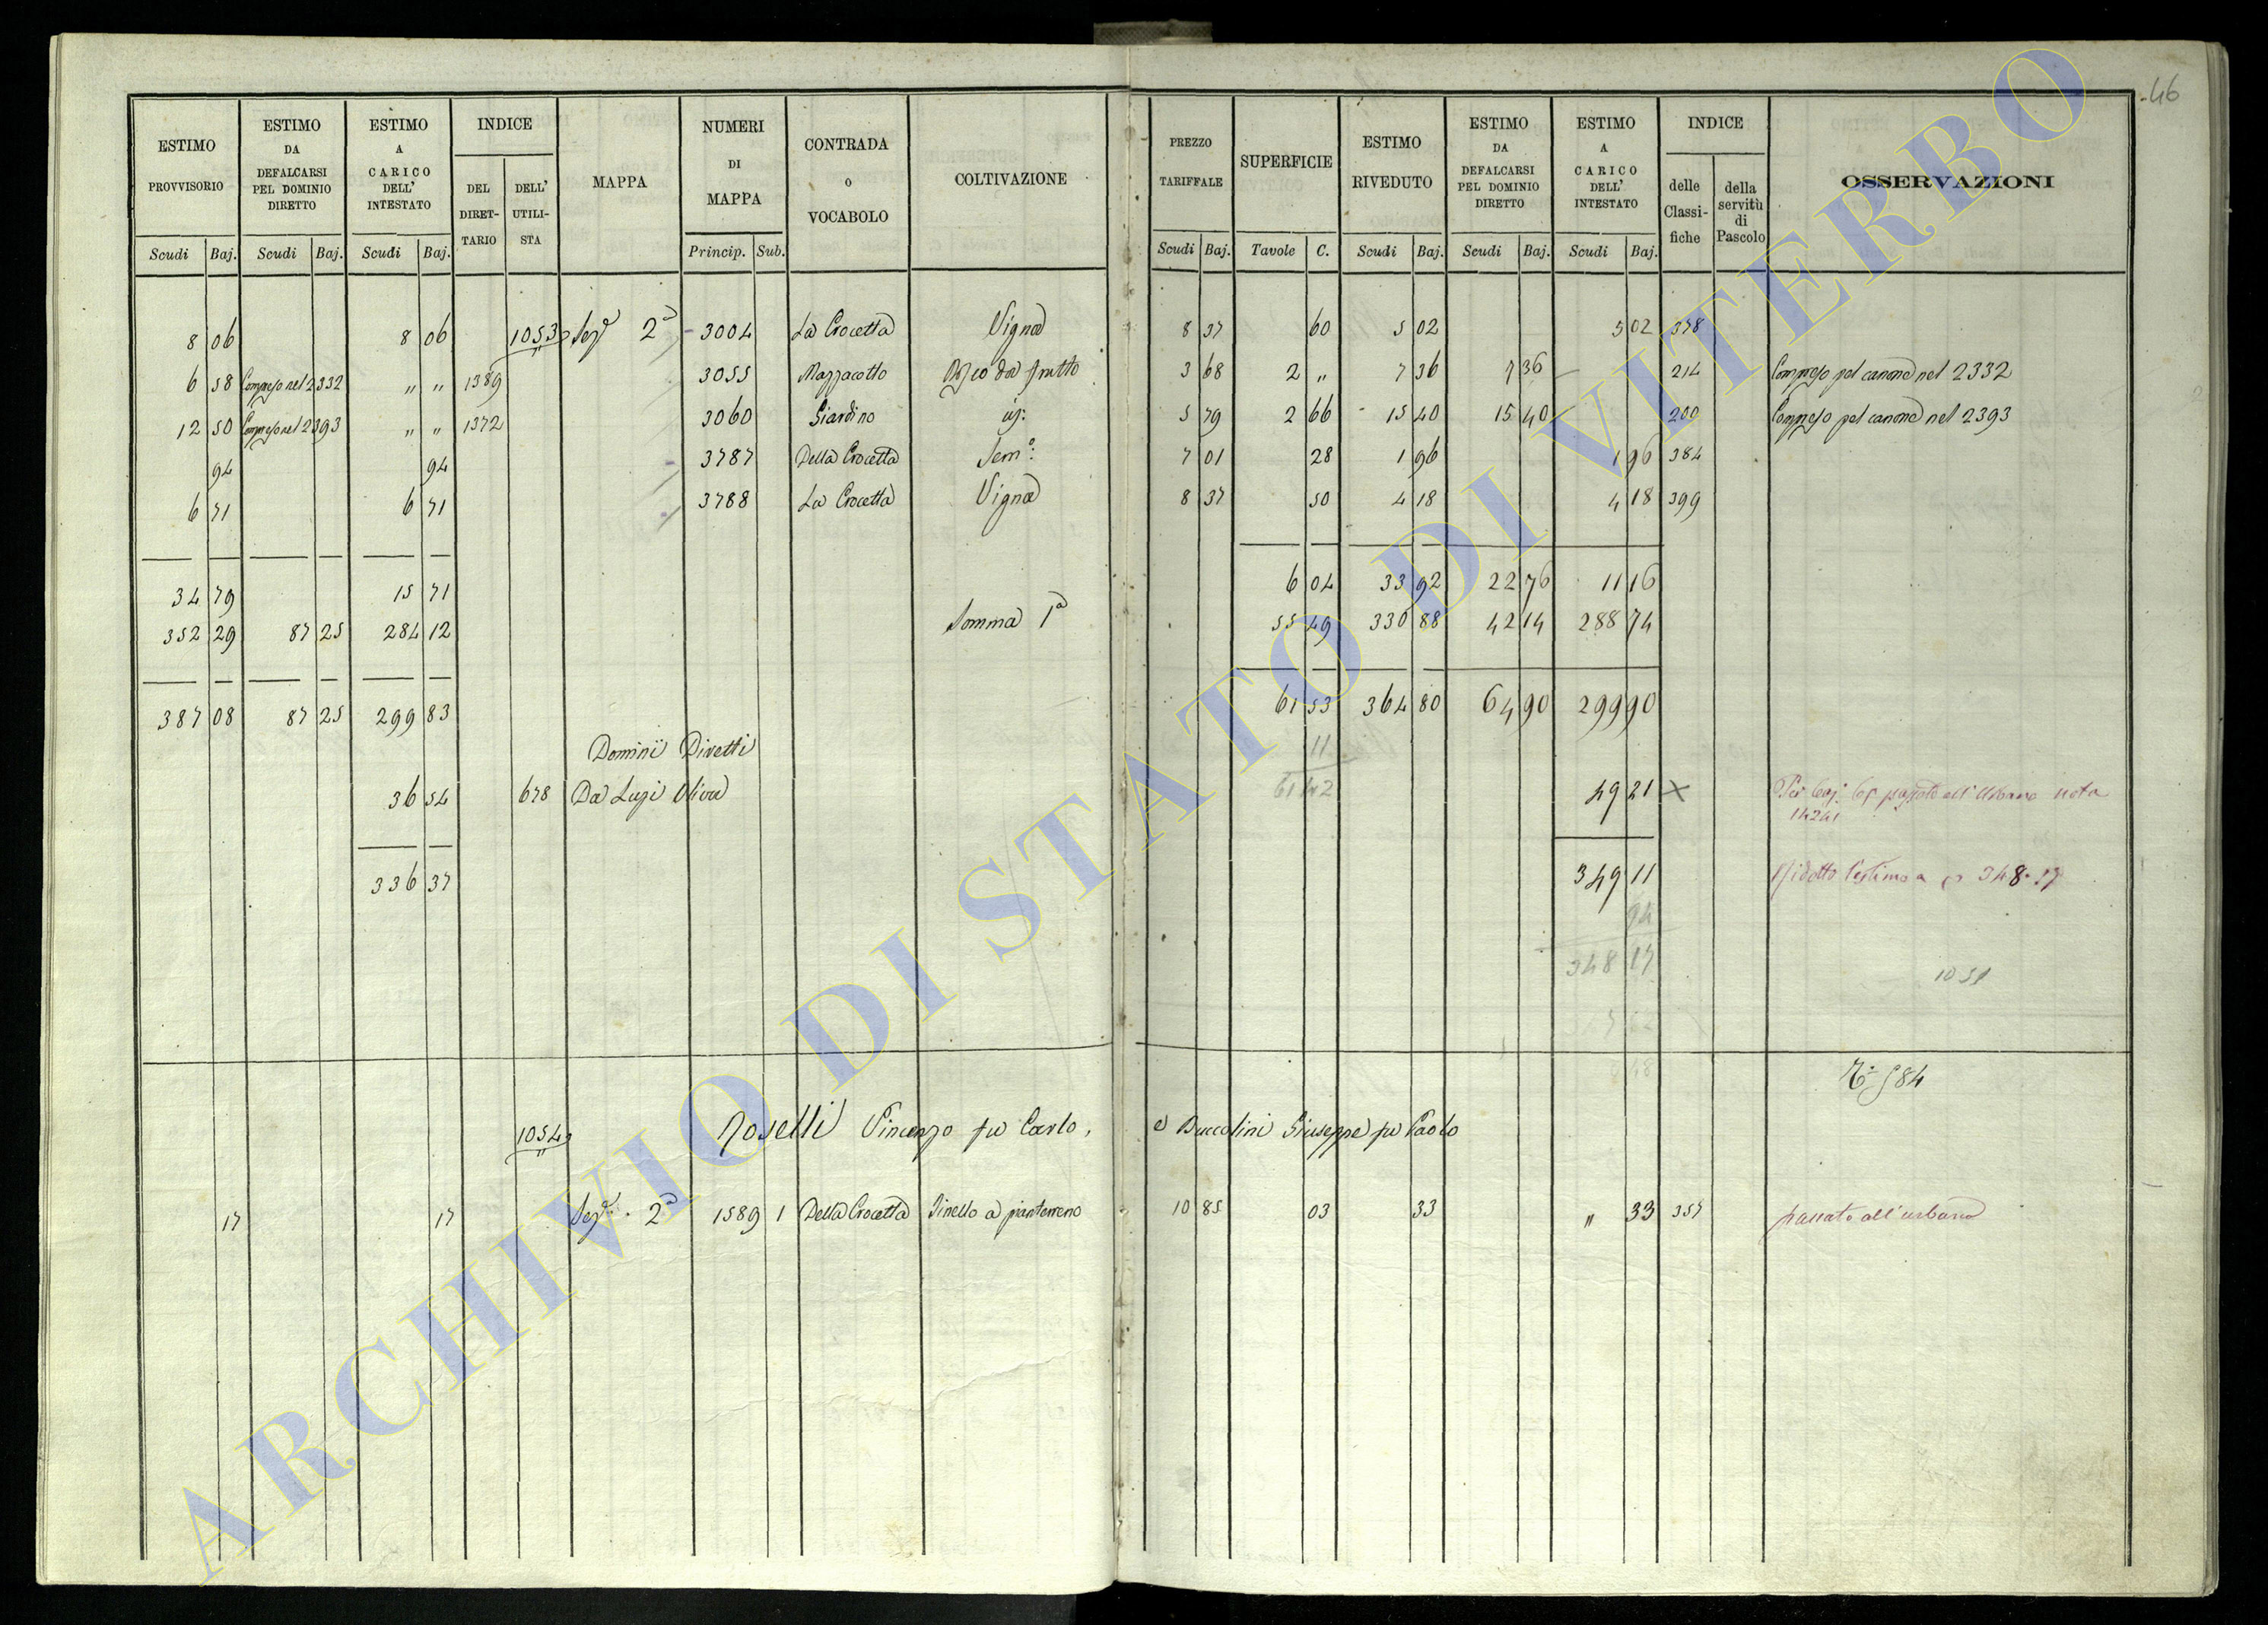 46
ESTIMO PROVVISORIO | ESTIMO DA DEFALCARSI PEL DOMINIO DIRETTO | ESTIMO A CARICO DELL' INTESTATO | INDICE | MAPPA | NUMERI DI MAPPA | CONTRADA O VOCABOLO | COLTIVAZIONE | PREZZO TARIFFALE | SUPERFICIE | ESTIMO RIVEDUTO | ESTIMO DA DEFALCARSI PEL DOMINIO DIRETTO | ESTIMO A CARICO DELL' INTESTATO | INDICE | OSSERVAZIONI
DEL DIRETTARIO | DELL' UTILISTA | delle Classifiche | della servitù di Pascolo
Scudi | Baj. | Scudi | Baj. | Scudi | Baj. | Princip. | Sub. | Scudi | Baj. | Tavole | C. | Scudi | Baj. | Scudi | Baj. | Scudi | Baj.
8 06 | 8 06 | 1053 | Sez. 2a | 3004 | La Crocetta | Vigna | 8 37 | 60 | 5 02 | 5 02 | 378
6 58 | Compreso nel 2332 | " " | 1389 | 3055 | Mazzacotto | Bosco da frutto | 3 68 | 2 " | 7 36 | 7 36 | 214 | Compreso pel canone nel 2332
12 50 | Compreso nel 2393 | " " | 1372 | 3060 | Giardino | 5 79 | 2 66 | 15 40 | 15 40 | 200 | Compreso pel canone nel 2393
94 | 94 | 3787 | Della Crocetta | Sem.o | 7 01 | 28 | 1 96 | 1 96 | 384
6 71 | 6 71 | 3788 | La Crocetta | Vigna | 8 37 | 50 | 4 18 | 4 18 | 399
34 79 | 15 71 | 6 04 | 33 92 | 22 76 | 11 16
352 29 | 87 25 | 284 12 | Somma 1a | 55 49 | 330 88 | 42 14 | 288 74
387 08 | 87 25 | 299 83 | 61 53 | 364 80 | 64 90 | 299 90
Dominii Diretti | 11
36 54 | 678 | Da Luzi Oliva | 61 42 | 49 21 | X | nota
14241
336 37 | 349 11 | Ridotto l'estimo a 348.17
94
348 17 | 1051
584
1054 | Roselli Vincenzo fu Carlo, e Buccolini Giuseppe fu Paolo
17 | 17 | Sez. 2a | 1589 1 | Della Crocetta | Tinello a pianterreno | 10 85 | 03 | 33 | " 33 | 357 | passato all'urbano
ARCHIVIO DI STATO DI VITERBO